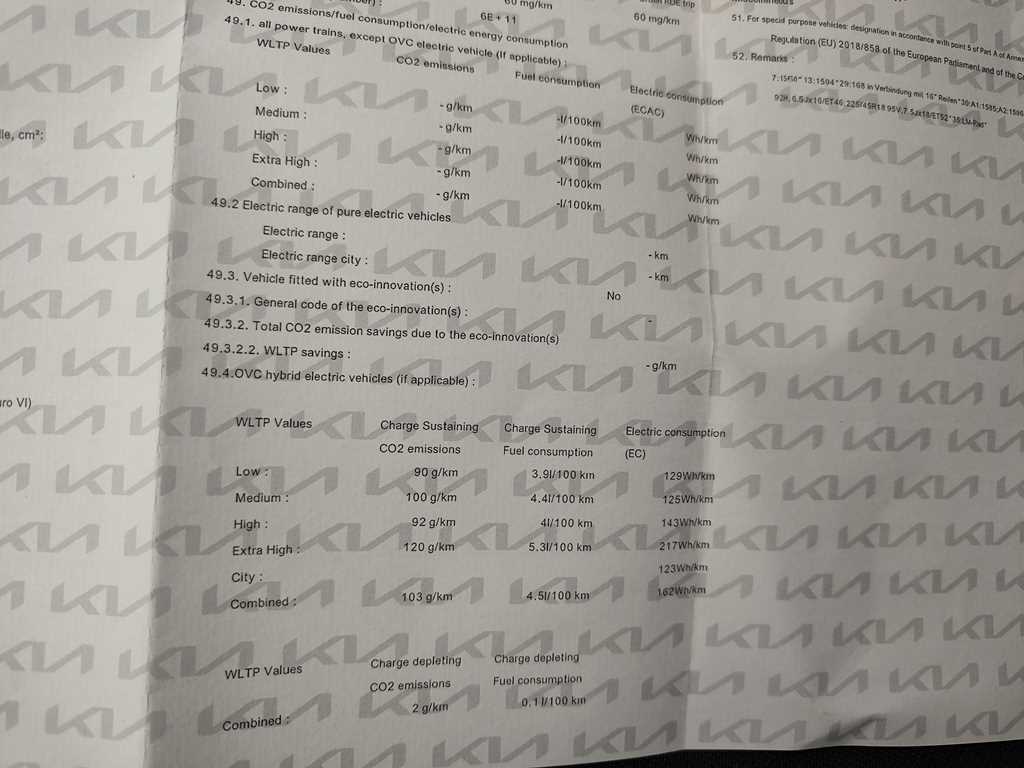 60 mg/km
6E + 11
60 mg/km
49. CO2 emissions/fuel consumption/electric energy consumption
49.1. all power trains, except OVC electric vehicle (if applicable) :
WLTP Values
CO2 emissions
Fuel consumption
Electric consumption
(ECAC)
Low :
- g/km
-l/100km
Wh/km
Medium :
- g/km
-l/100km
Wh/km
High :
- g/km
-l/100km
Wh/km
Extra High :
- g/km
-l/100km
Wh/km
Combined :
- g/km
-l/100km
Wh/km
49.2 Electric range of pure electric vehicles
Electric range :
- km
Electric range city :
- km
49.3. Vehicle fitted with eco-innovation(s) :
No
49.3.1. General code of the eco-innovation(s) :
-
49.3.2. Total CO2 emission savings due to the eco-innovation(s)
49.3.2.2. WLTP savings :
- g/km
49.4.OVC hybrid electric vehicles (if applicable) :
WLTP Values
Charge Sustaining
CO2 emissions
Charge Sustaining
Fuel consumption
Electric consumption
(EC)
Low :
90 g/km
3.9l/100 km
129Wh/km
Medium :
100 g/km
4.4l/100 km
125Wh/km
High :
92 g/km
4l/100 km
143Wh/km
Extra High :
120 g/km
5.3l/100 km
217Wh/km
City :
123Wh/km
Combined :
103 g/km
4.5l/100 km
162Wh/km
WLTP Values
Charge depleting
CO2 emissions
Charge depleting
Fuel consumption
Combined :
2 g/km
0.1 l/100 km
51. For special purpose vehicles: designation in accordance with point 5 of Part A of Annex
Regulation (EU) 2018/858 of the European Parliament and of the Co
52. Remarks :
in Verbindung mit 16" Reifen*
lle, cm³:
uro VI)
KIA